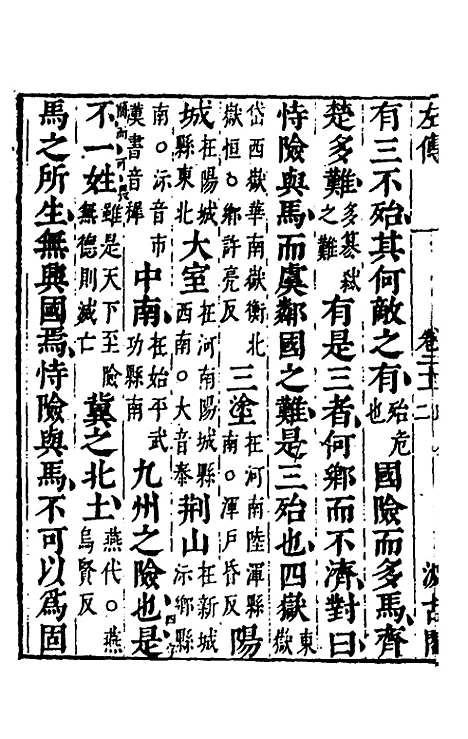 左傳
有三不殆其何敵之有殆危也國險而多馬齊
楚多難多篡弒之難有是三者何鄉而不濟對曰
恃險與馬而虞鄰國之難是三殆也四嶽東嶽
岱西嶽華南嶽衡北嶽恒○鄉許亮反三塗在河南陸渾縣南○渾戶昏反陽
城在陽城縣東北大室在河南陽城縣西南○大音泰荊山在新城沶鄉縣
南○沶音市漢書音禔中南在始平武功縣南九州之險也是
不一姓雖是天下至險無德則滅亡冀之北土燕代○燕烏賢反
馬之所生無興國焉恃險與馬不可以為固